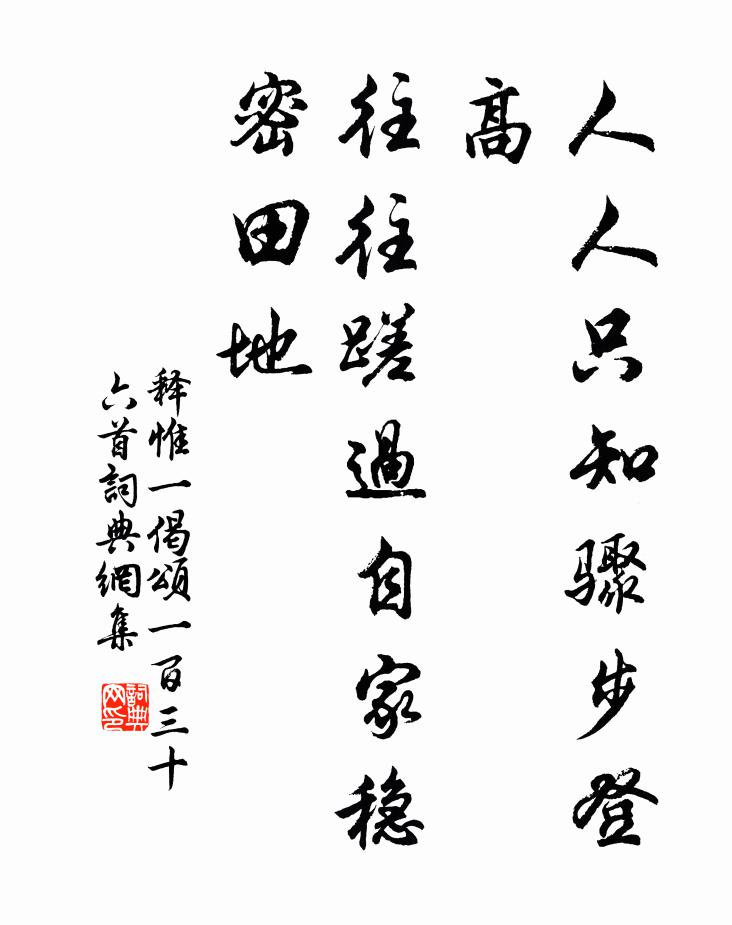 人人只知骤步登
高
往往蹉過自家穏
密田地
释惟一偈頌一百三十
六首詞典網集
詞典
网印